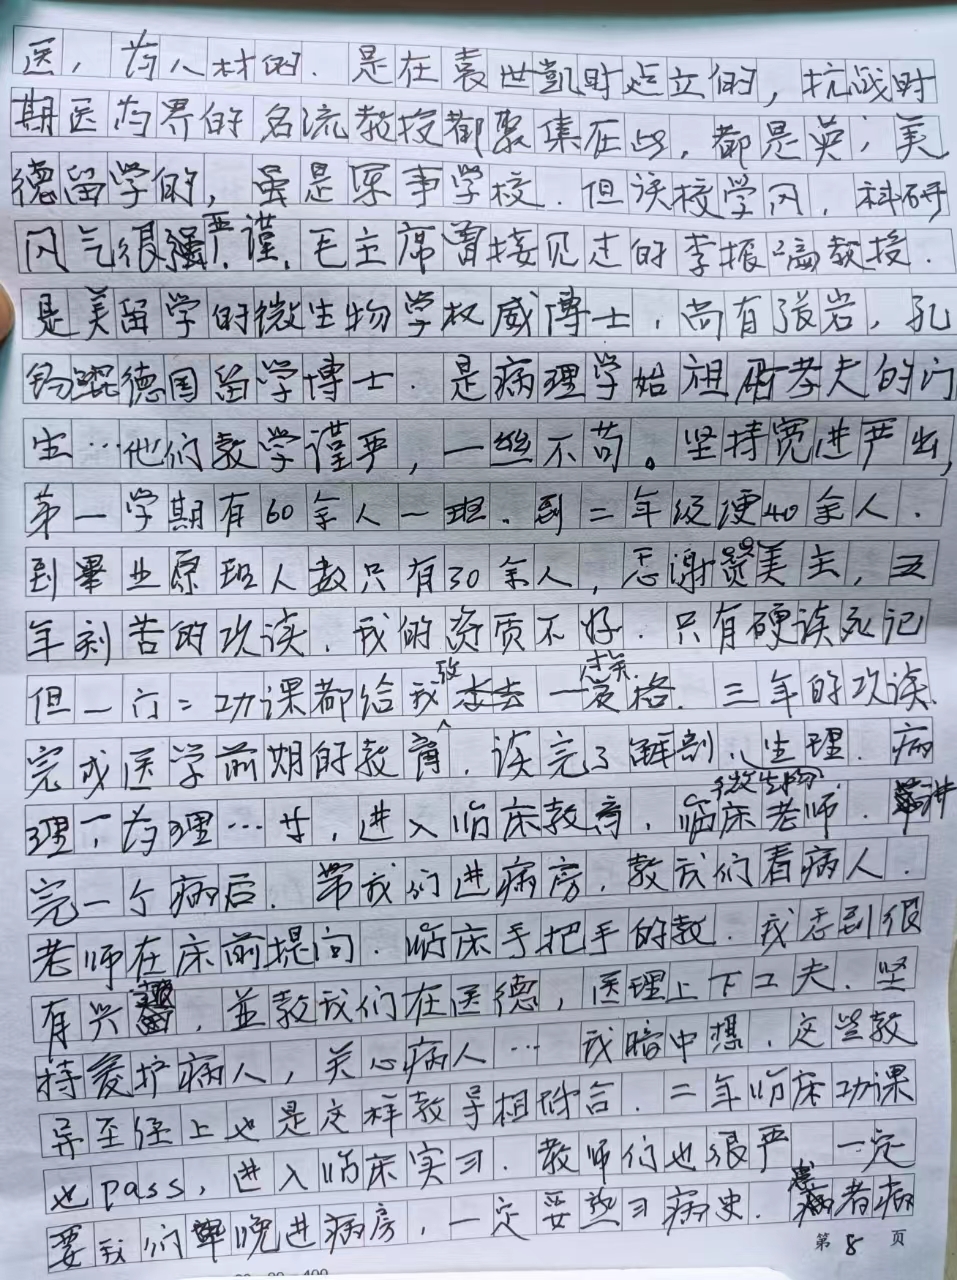 医，药人材的．是在袁世凯时建立的，抗战时
期医药界的名流教授都聚集在此，都是英，美
德留学的，虽是军事学校．但该校学风，科研
风气很强严谨．毛主席曾接见过的李振翩教授．
是美留学的微生物学权威博士，尚有张岩，孔
锡鲲德国留学博士．是病理学始祖 孝夫的门
生…他们教学谨严，一丝不苟。坚持宽进严出，
第一学期有60余人一班．到二年级便40余人．
到畢业原班人数只有30余人，感谢赞美主，五
年刻苦的攻读．我的资质不好．只有硬读死记
但一门二功课都给我 格．三年的攻读．
完成医学前期的教育．读完了解剖、生理．病
微生物
理，药理…等，进入临床教育，临床老师．讲
完一个病后．带我们进病房，教我们看病人．
老师在床前提问．临床手把手的教．我感到很
有兴趣，並教我们在医德，医理上下工夫．坚
持爱护病人，关心病人…我暗中想，这些教
导圣经上也是这样教导相吻合．二年临床功课
也pass，进入临床实习．教师们也很严 一定
要我们早晚进病房，一定要熟习病史．患者病
第 8 页